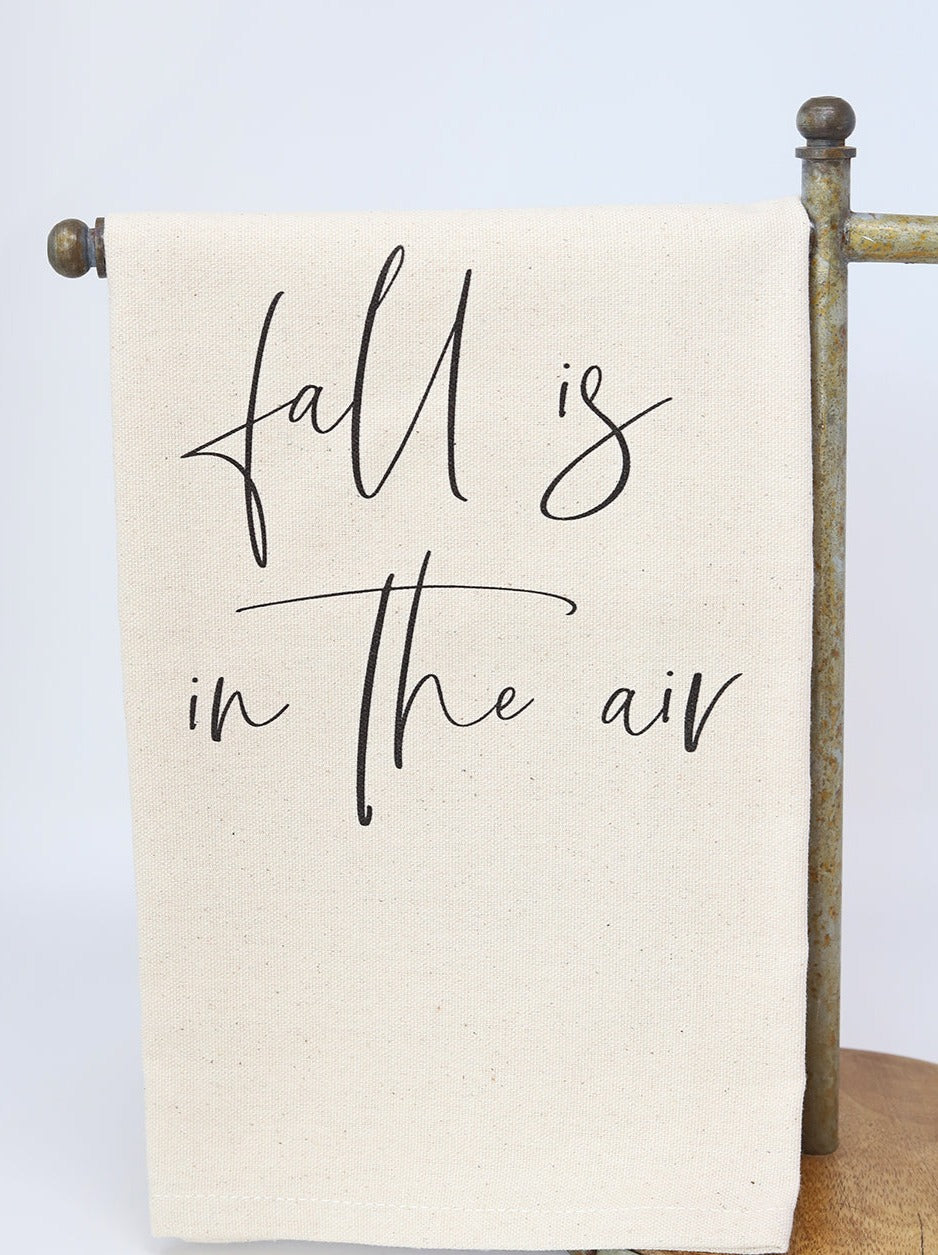 fall is
in the air